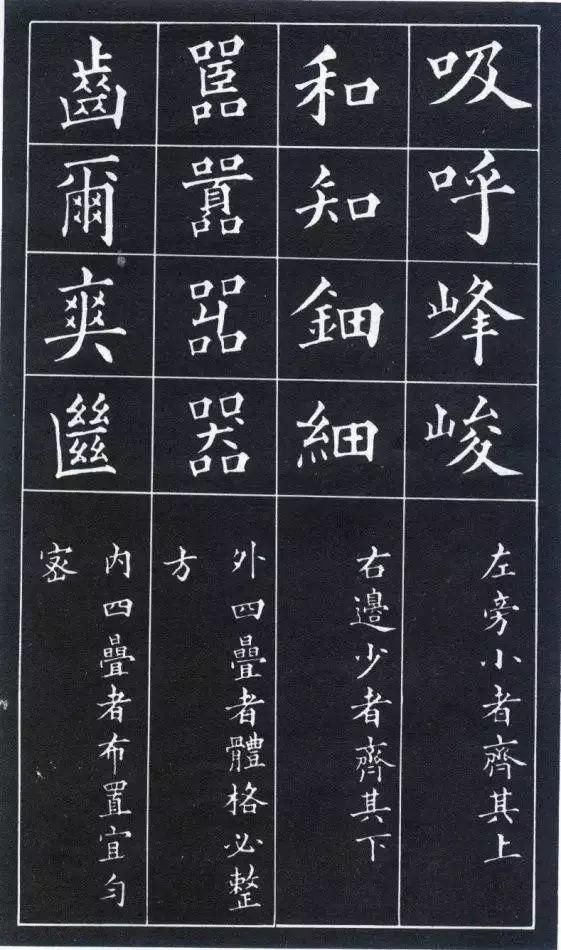 吸呼峰峻
左旁小者齊其上
和知鈿細
右邊少者齊其下
嚚囂嘂器
外四疊者體格必整
方
齒爾爽㡭
內四疊者布置宜勻
密